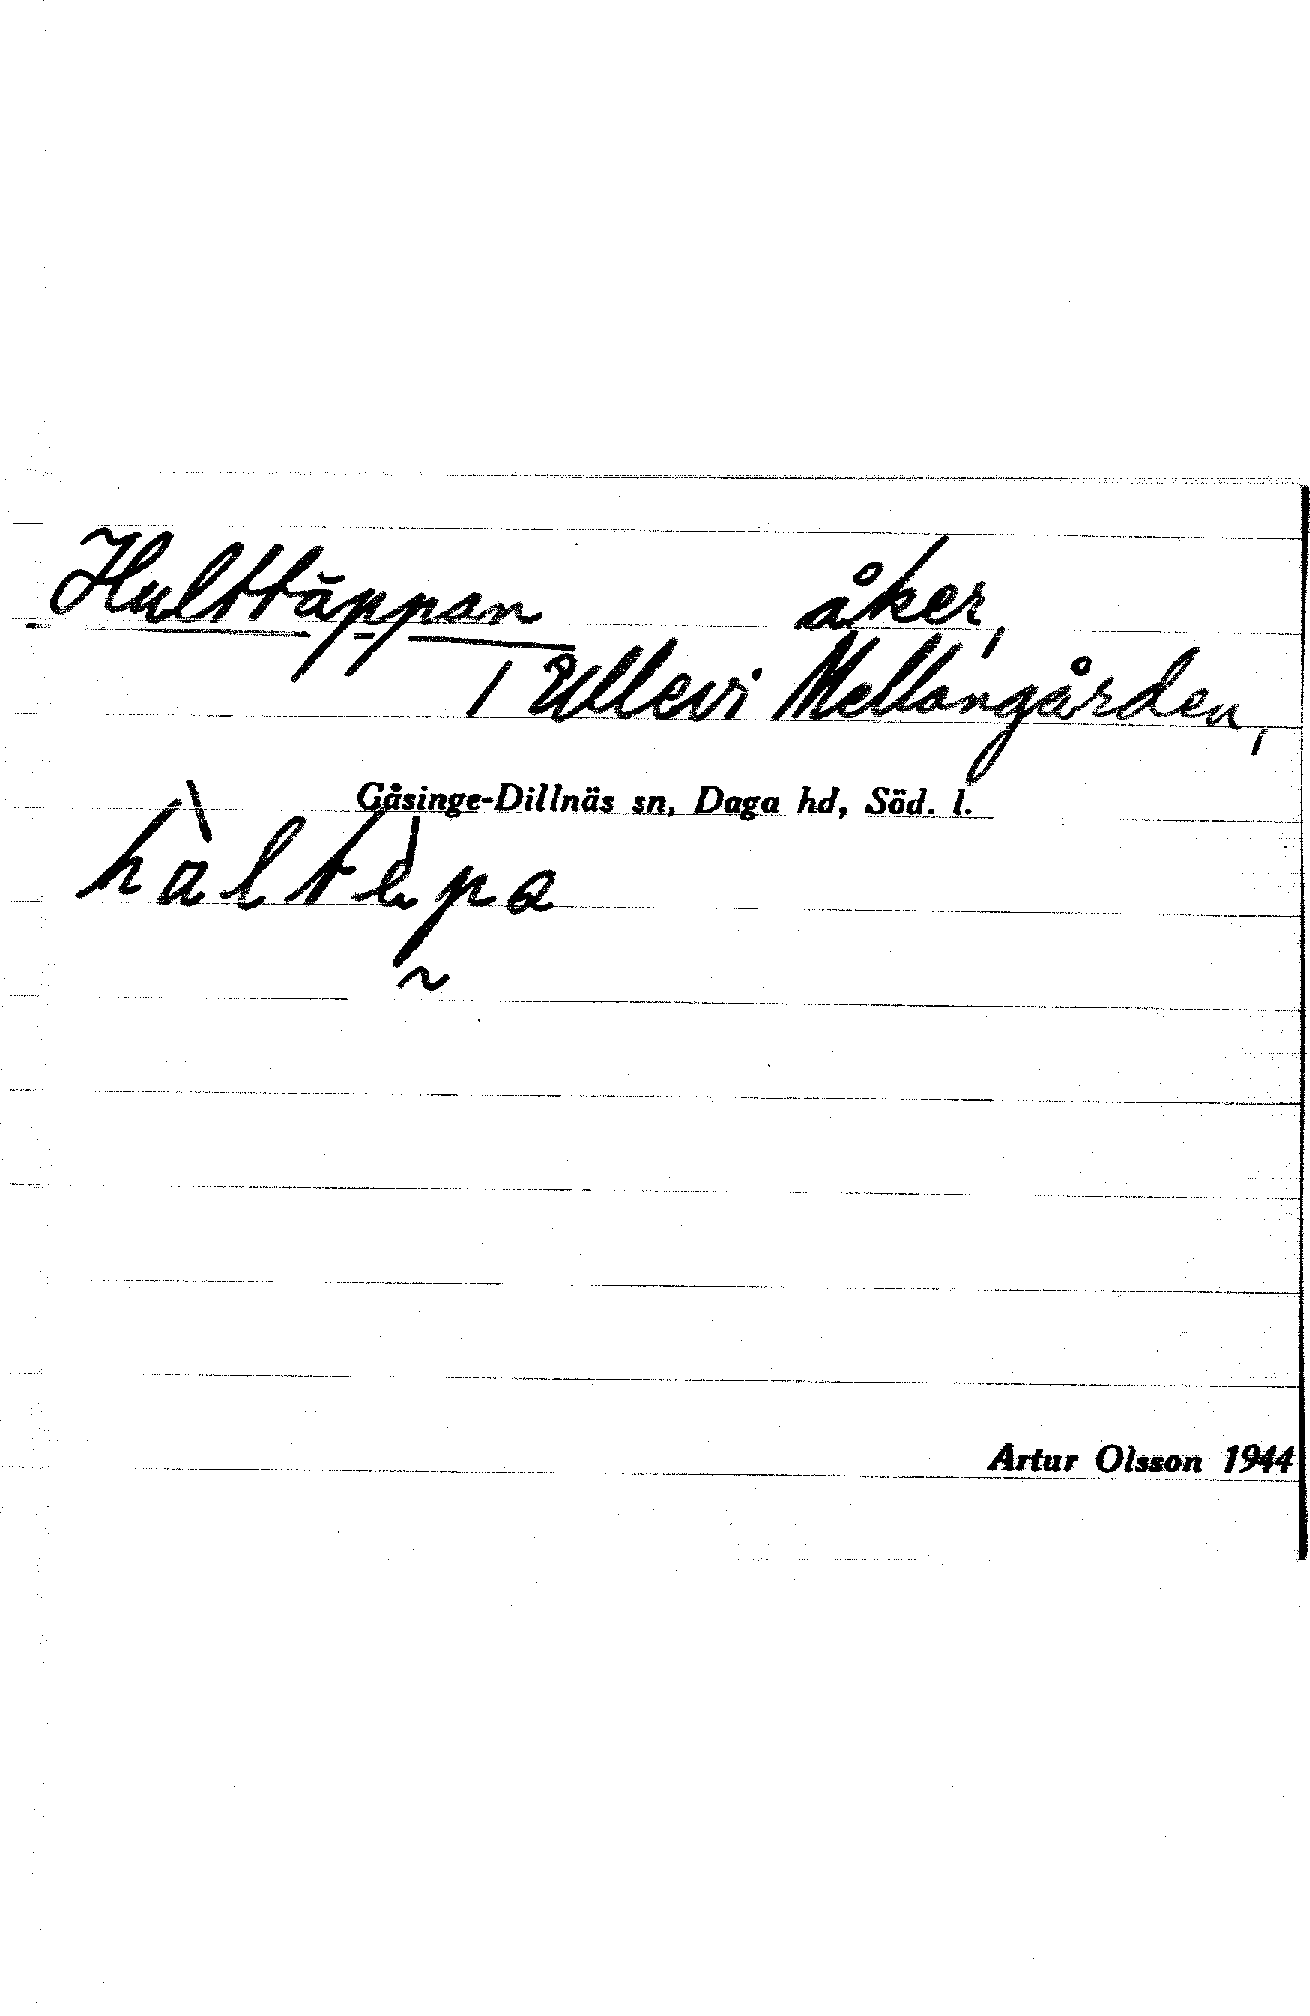 Hulttäppan åker,
i Ullevi Mellangården,
Gåsinge-Dillnäs sn, Daga hd, Söd. l.
Artur Olsson 1944